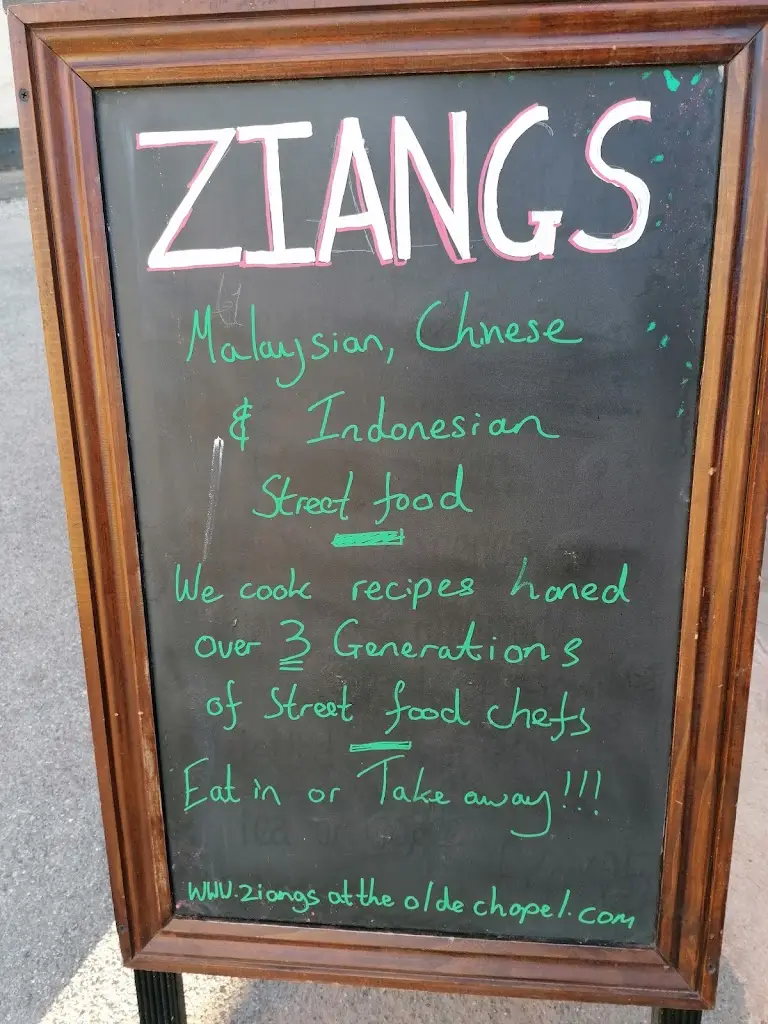 ZIANGS
Malaysian, Chinese
& Indonesian
Street food
We cook recipes honed
over 3 Generations
of Street food chefs
Eat in or Take away!!!
www.ziangsattheoldechapel.com